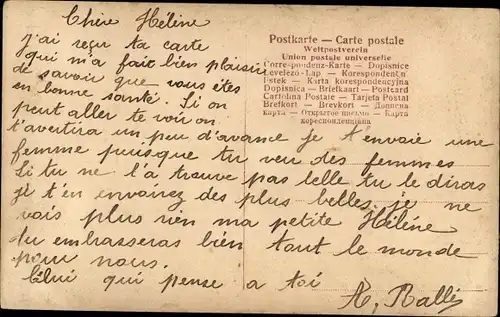 Chère Hélène
j'ai reçu ta carte
qui m'a fait bien plaisir
de savoir que vous êtes
en bonne santé. Si on
peut aller te voir on
t'avertira un peu d'avance je t'envoie une
femme puisque tu veu des femmes
Si tu ne l'a trouve pas belle tu le diras
je t'en envairez des plus belles. je ne
vais plus rien ma petite Hélène
du embrasseras bien tout le monde
pour nous.
Celui qui pense a toi
A, Rallis
Postkarte — Carte postale
Weltpostverein
Union postale universelle
Correspondenz-Karte — Dopisnice
Levelező-Lap — Korespondenční
Lístek — Karta korespondencyjna
Dopisnica — Briefkaart — Postcard
Cartolina Postale — Tarjeta Postal
Brefkort — Brevkort — Дописна
карта — Открытое письмо — Карта
кореспонденцiйна